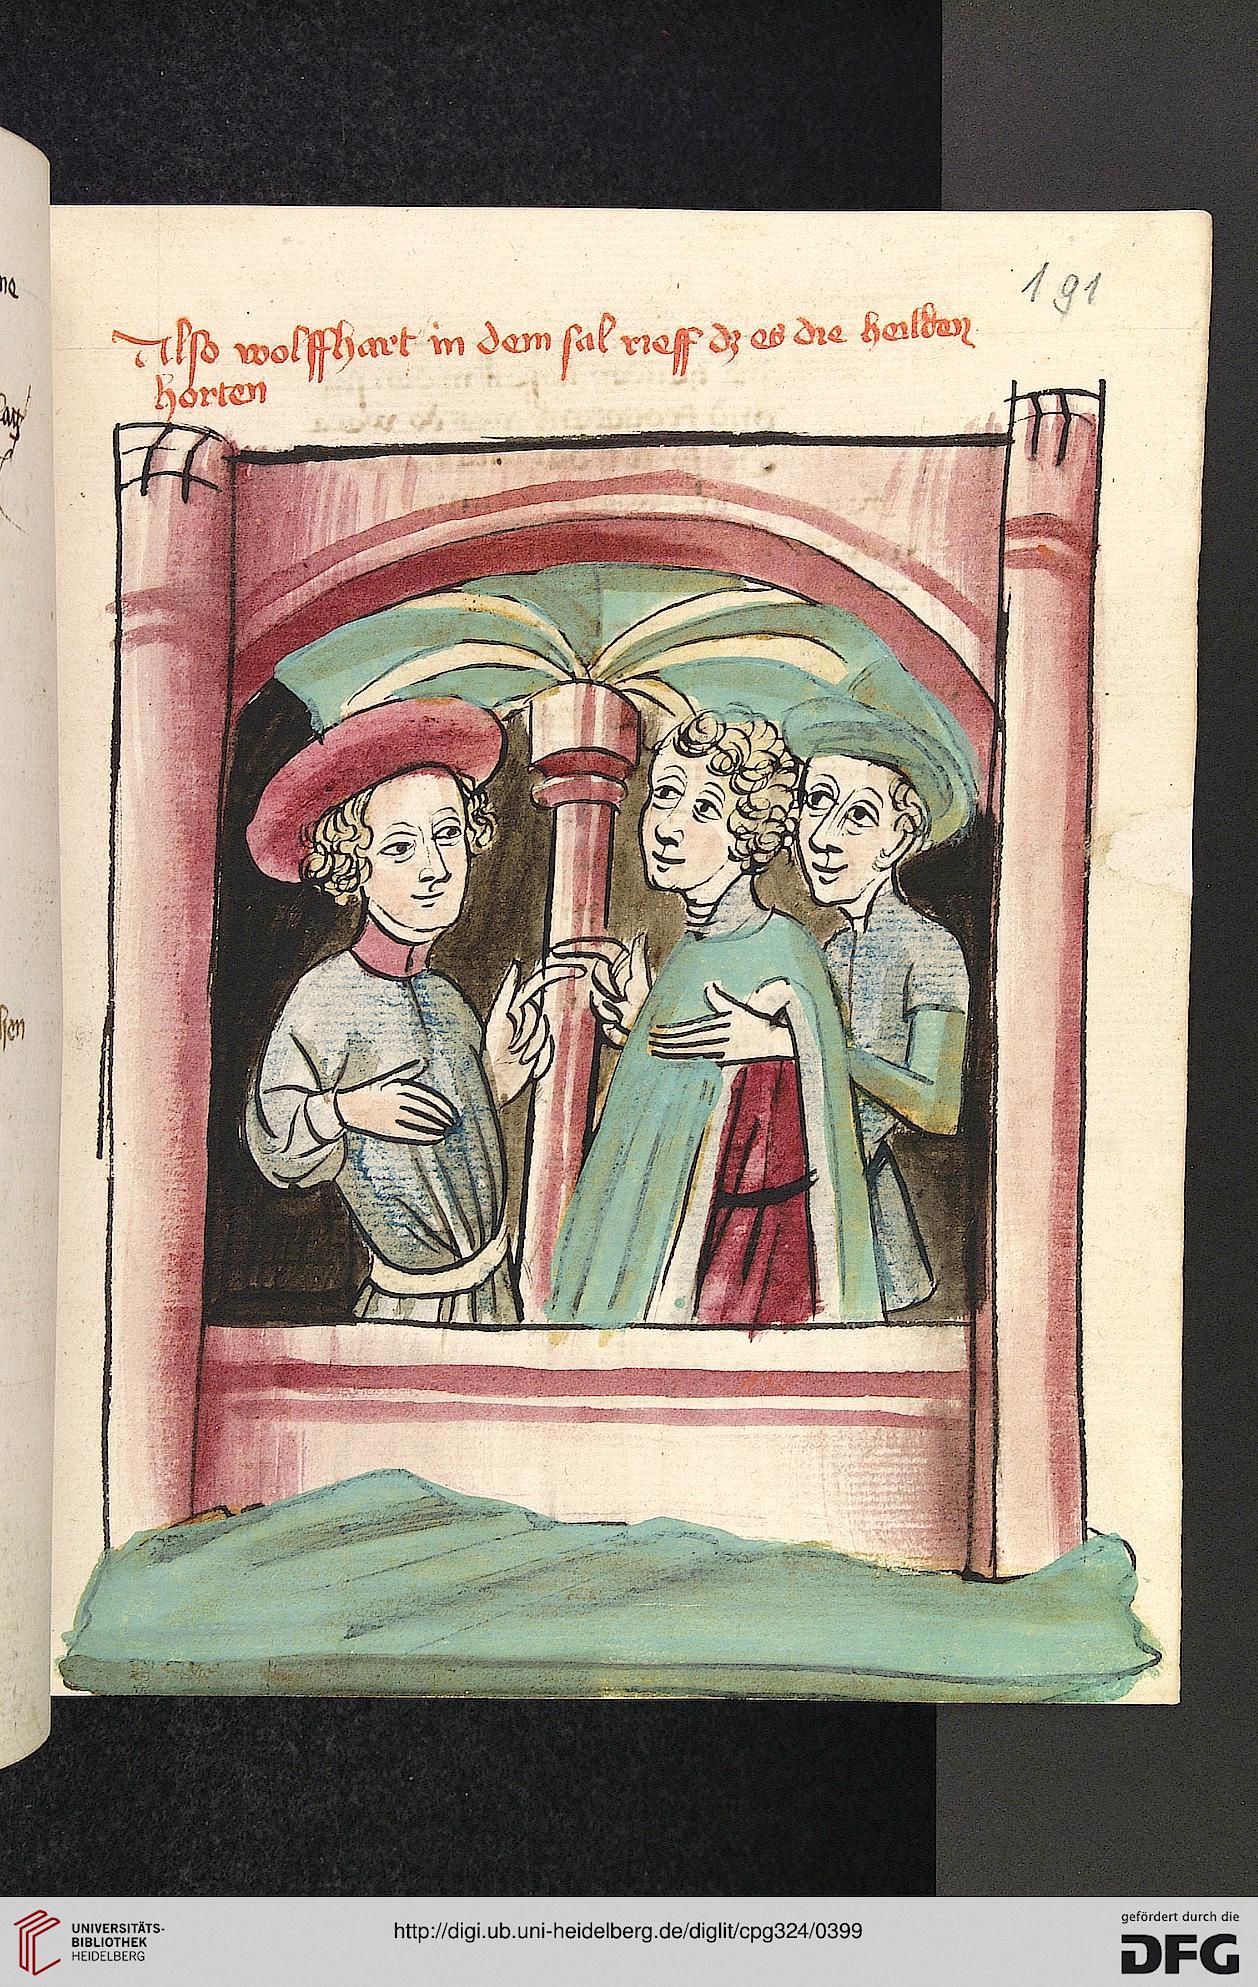 191
Also wolffhart in dem sal rieff dz es die heilden
horten
ne
sen
UNIVERSITÄTS-
BIBLIOTHEK
HEIDELBERG
http://digi.ub.uni-heidelberg.de/diglit/cpg324/0399
gefördert durch die
DFG